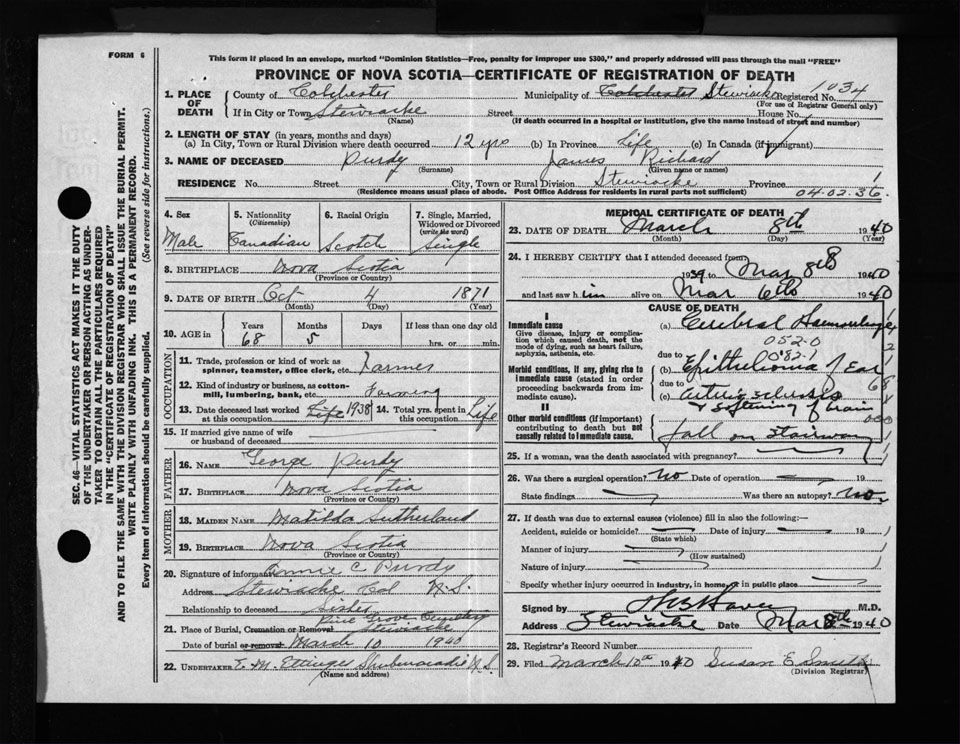 FORM 6
This form if placed in an envelope, marked "Dominion Statistics—Free, penalty for improper use $300," and properly addressed will pass through the mail "FREE"
PROVINCE OF NOVA SCOTIA—CERTIFICATE OF REGISTRATION OF DEATH
1. PLACE OF DEATH County of Colchester Municipality of Colchester Stewiacke Registered No. 1034
(For use of Registrar General only)
If in City or Town Stewiacke Street House No.
(Name) (If death occurred in a hospital or institution, give the name instead of street and number)
2. LENGTH OF STAY (in years, months and days)
(a) In City, Town or Rural Division where death occurred 12 yrs (b) In Province Life (c) In Canada (if immigrant)
3. NAME OF DECEASED Purdy James Richard
(Surname) (Given name or names)
RESIDENCE No. Street City, Town or Rural Division Stewiacke Province 1
(Residence means usual place of abode. Post Office Address for residents in rural parts not sufficient) 04.02.36.
4. Sex Male
5. Nationality (Citizenship) Canadian
6. Racial Origin Scotch
7. Single, Married, Widowed or Divorced (write the word) Single
8. BIRTHPLACE Nova Scotia
(Province or Country)
9. DATE OF BIRTH Oct 4 1871
(Month) (Day) (Year)
10. AGE in Years 68 Months 5 Days If less than one day old hrs. or min.
OCCUPATION
11. Trade, profession or kind of work as spinner, teamster, office clerk, etc. Farmer
12. Kind of industry or business, as cotton-mill, lumbering, bank, etc. Farming
13. Date deceased last worked at this occupation 1938 14. Total yrs. spent in this occupation Life
15. If married give name of wife or husband of deceased
FATHER
16. NAME George Purdy
17. BIRTHPLACE Nova Scotia
(Province or Country)
MOTHER
18. MAIDEN NAME Matilda Sutherland
19. BIRTHPLACE Nova Scotia
(Province or Country)
20. Signature of informant Annie C Purdy
Address Stewiacke Col N.S.
Relationship to deceased Sister
Pine Grove Cemetery
21. Place of Burial, Cremation or Removal Stewiacke
Date of burial or removal March 10 1940
22. UNDERTAKER E. M. Ettinger Shubenacadie N.S.
(Name and address)
MEDICAL CERTIFICATE OF DEATH
23. DATE OF DEATH March 8th 1940
(Month) (Day) (Year)
24. I HEREBY CERTIFY that I attended deceased from
1939 to Mar 8th 1940
and last saw him alive on Mar 6th 1940
CAUSE OF DEATH
I
Immediate cause (a) Cerebral Haemorrhage
Give disease, injury or complication which caused death, not the mode of dying, such as heart failure, asphyxia, asthenia, etc.
052.0
082.1
due to
Morbid conditions, if any, giving rise to immediate cause (stated in order proceeding backwards from immediate cause). (b) Epithelioma of Ear
due to
(c) Arteriosclerosis
& softening of brain
II
Other morbid conditions (if important) contributing to death but not causally related to immediate cause. fall on stairway
25. If a woman, was the death associated with pregnancy?
26. Was there a surgical operation? No Date of operation 19
State findings Was there an autopsy? No.
27. If death was due to external causes (violence) fill in also the following:—
Accident, suicide or homicide? Date of injury 19
(State which)
Manner of injury
(How sustained)
Nature of injury
Specify whether injury occurred in industry, in home or in public place
Signed by M.D.
Address Stewiacke Date Mar 8th 1940
28. Registrar's Record Number
29. Filed March 10th 1940 Susan E. Smith
(Division Registrar)
SEC. 46—VITAL STATISTICS ACT MAKES IT THE DUTY
OF THE UNDERTAKER OR PERSON ACTING AS UNDER-
TAKER TO OBTAIN ALL THE PARTICULARS REQUIRED
IN THE "CERTIFICATE OF REGISTRATION OF DEATH"
AND TO FILE THE SAME WITH THE DIVISION REGISTRAR WHO SHALL ISSUE THE BURIAL PERMIT.
WRITE PLAINLY WITH UNFADING INK. THIS IS A PERMANENT RECORD.
Every item of information should be carefully supplied. (See reverse side for instructions.)